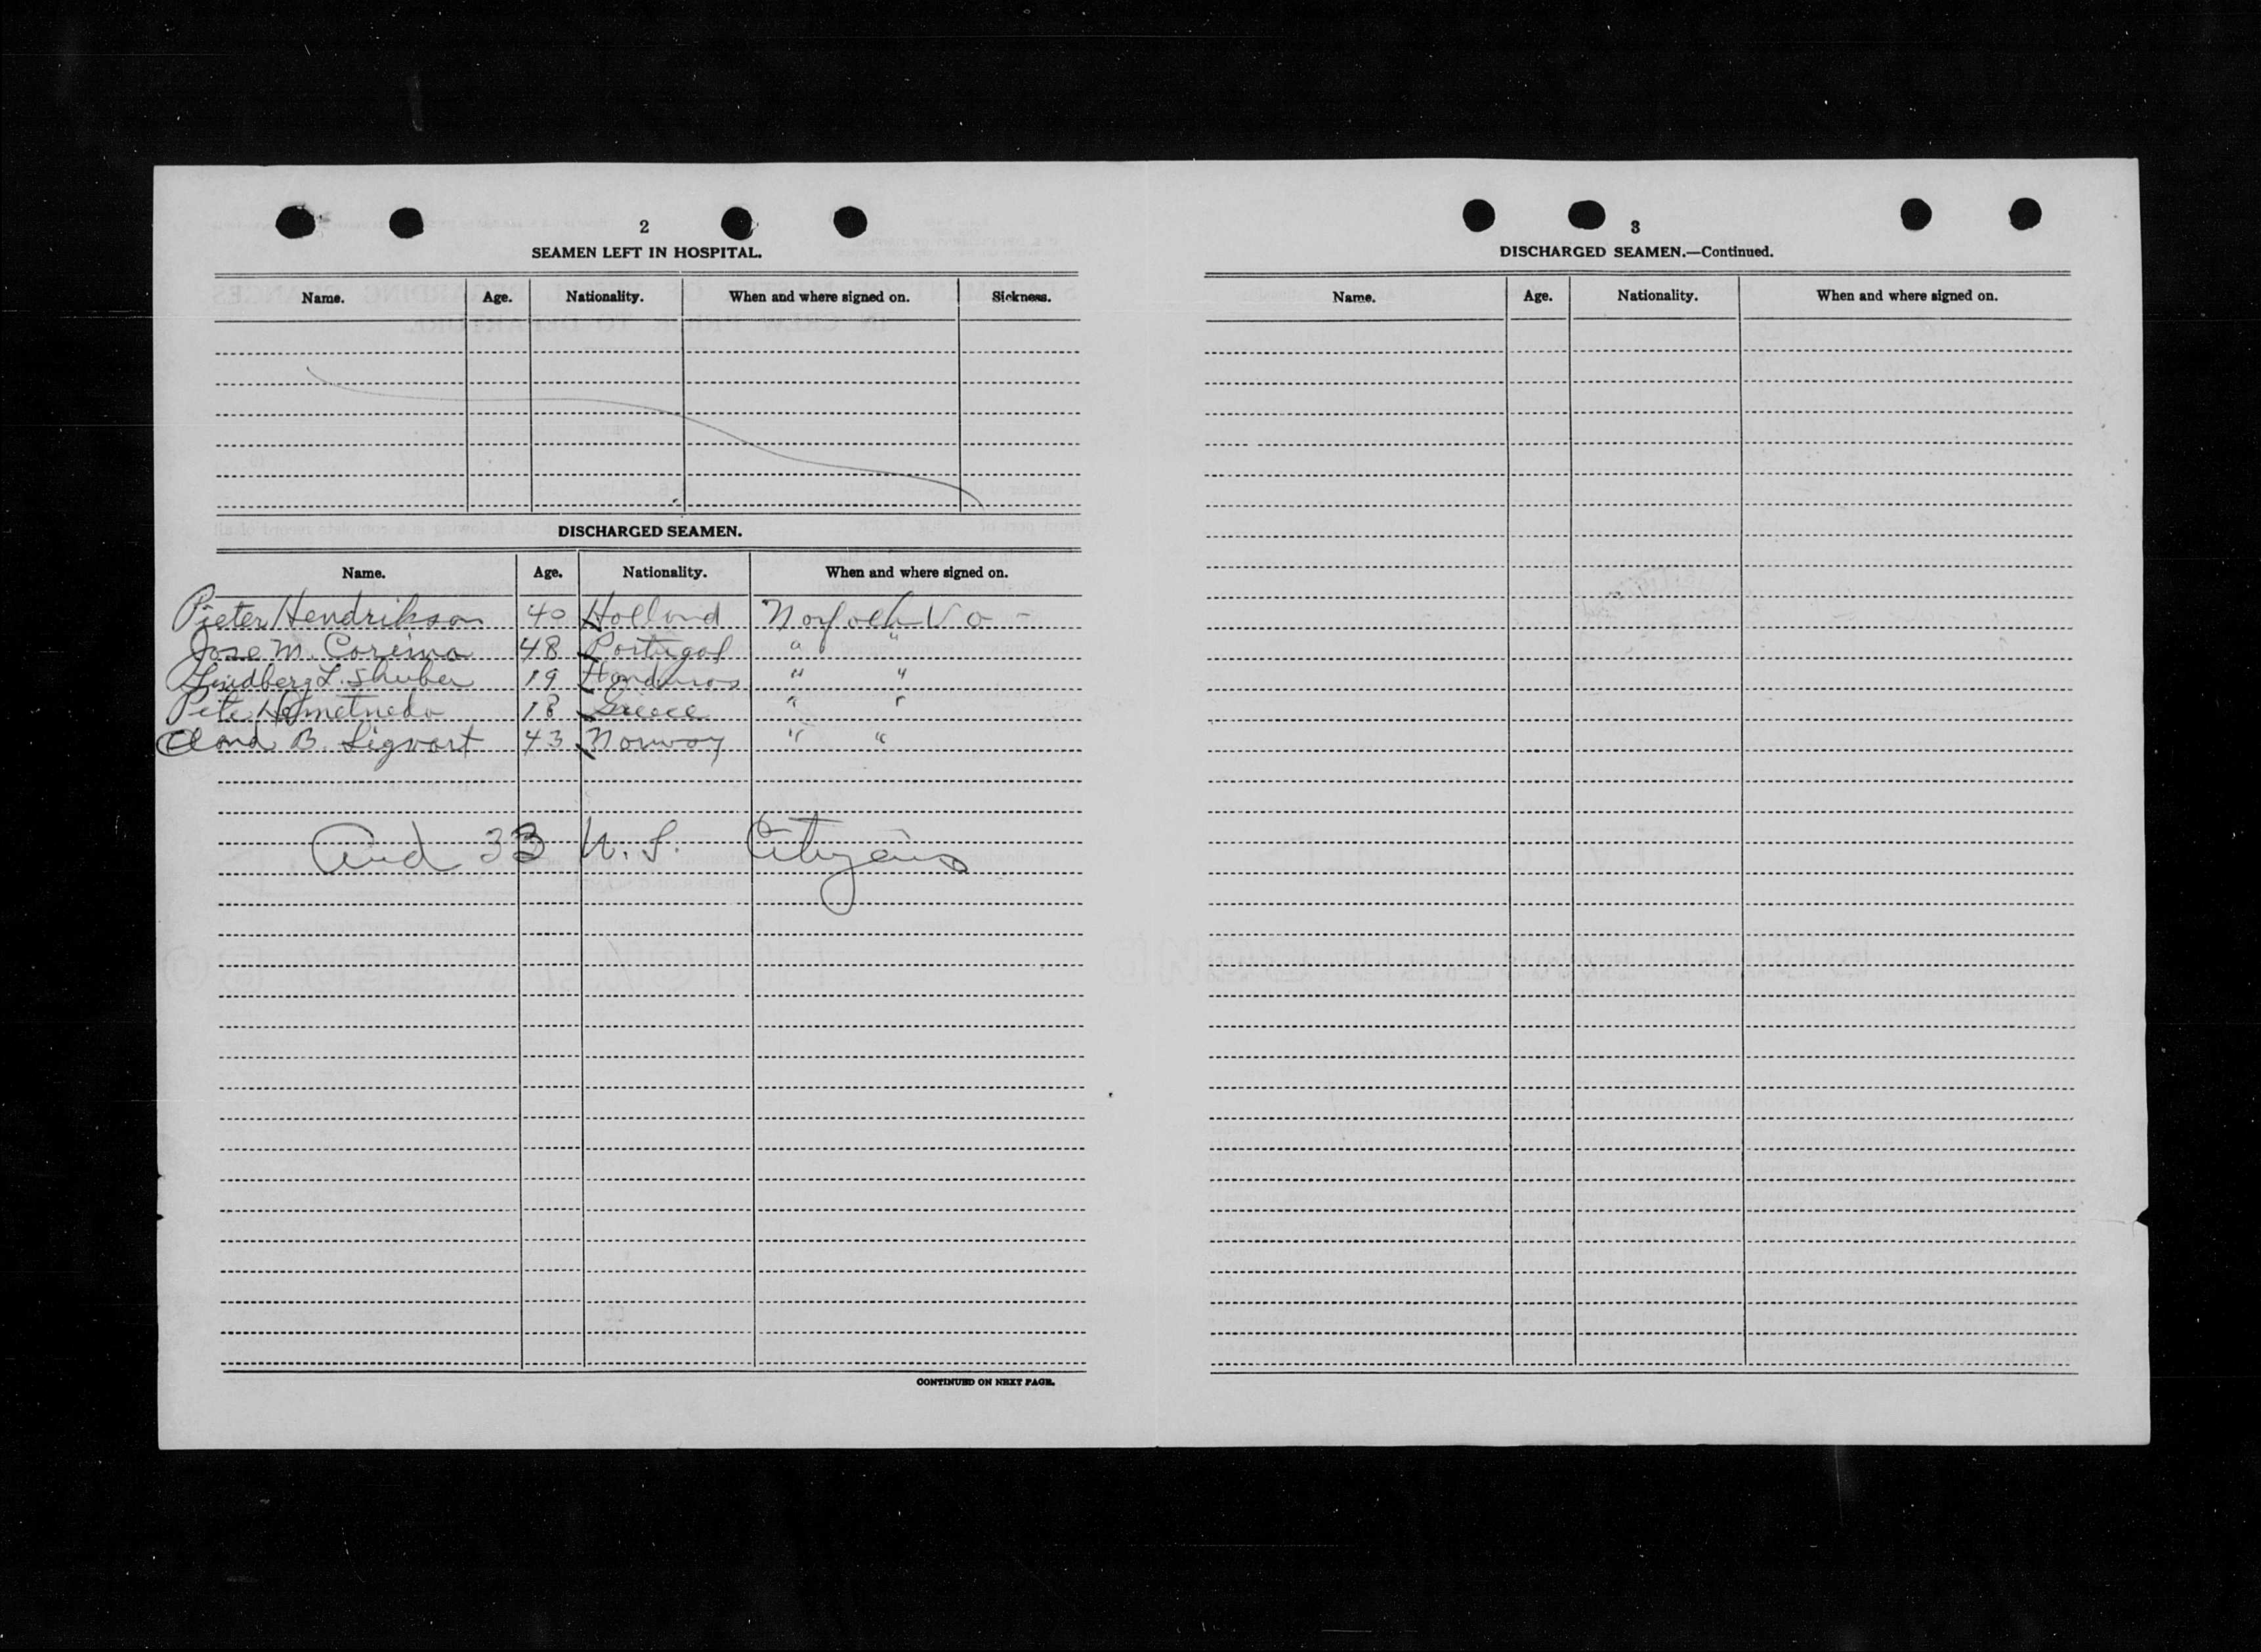 2
SEAMEN LEFT IN HOSPITAL.
Name. Age. Nationality. When and where signed on. Sickness.
DISCHARGED SEAMEN.
Name. Age. Nationality. When and where signed on.
Pieter Hendrikson 40 Holland Norfolk Va -
Jose M. 48 Portugal " "
Lindberg L. Shuber 19 Honduras " "
Pete 18 Greece " "
B. Sigvart 43 Norway " "
And 33 U. S. Citizens
CONTINUED ON NEXT PAGE.
3
DISCHARGED SEAMEN.—Continued.
Name. Age. Nationality. When and where signed on.